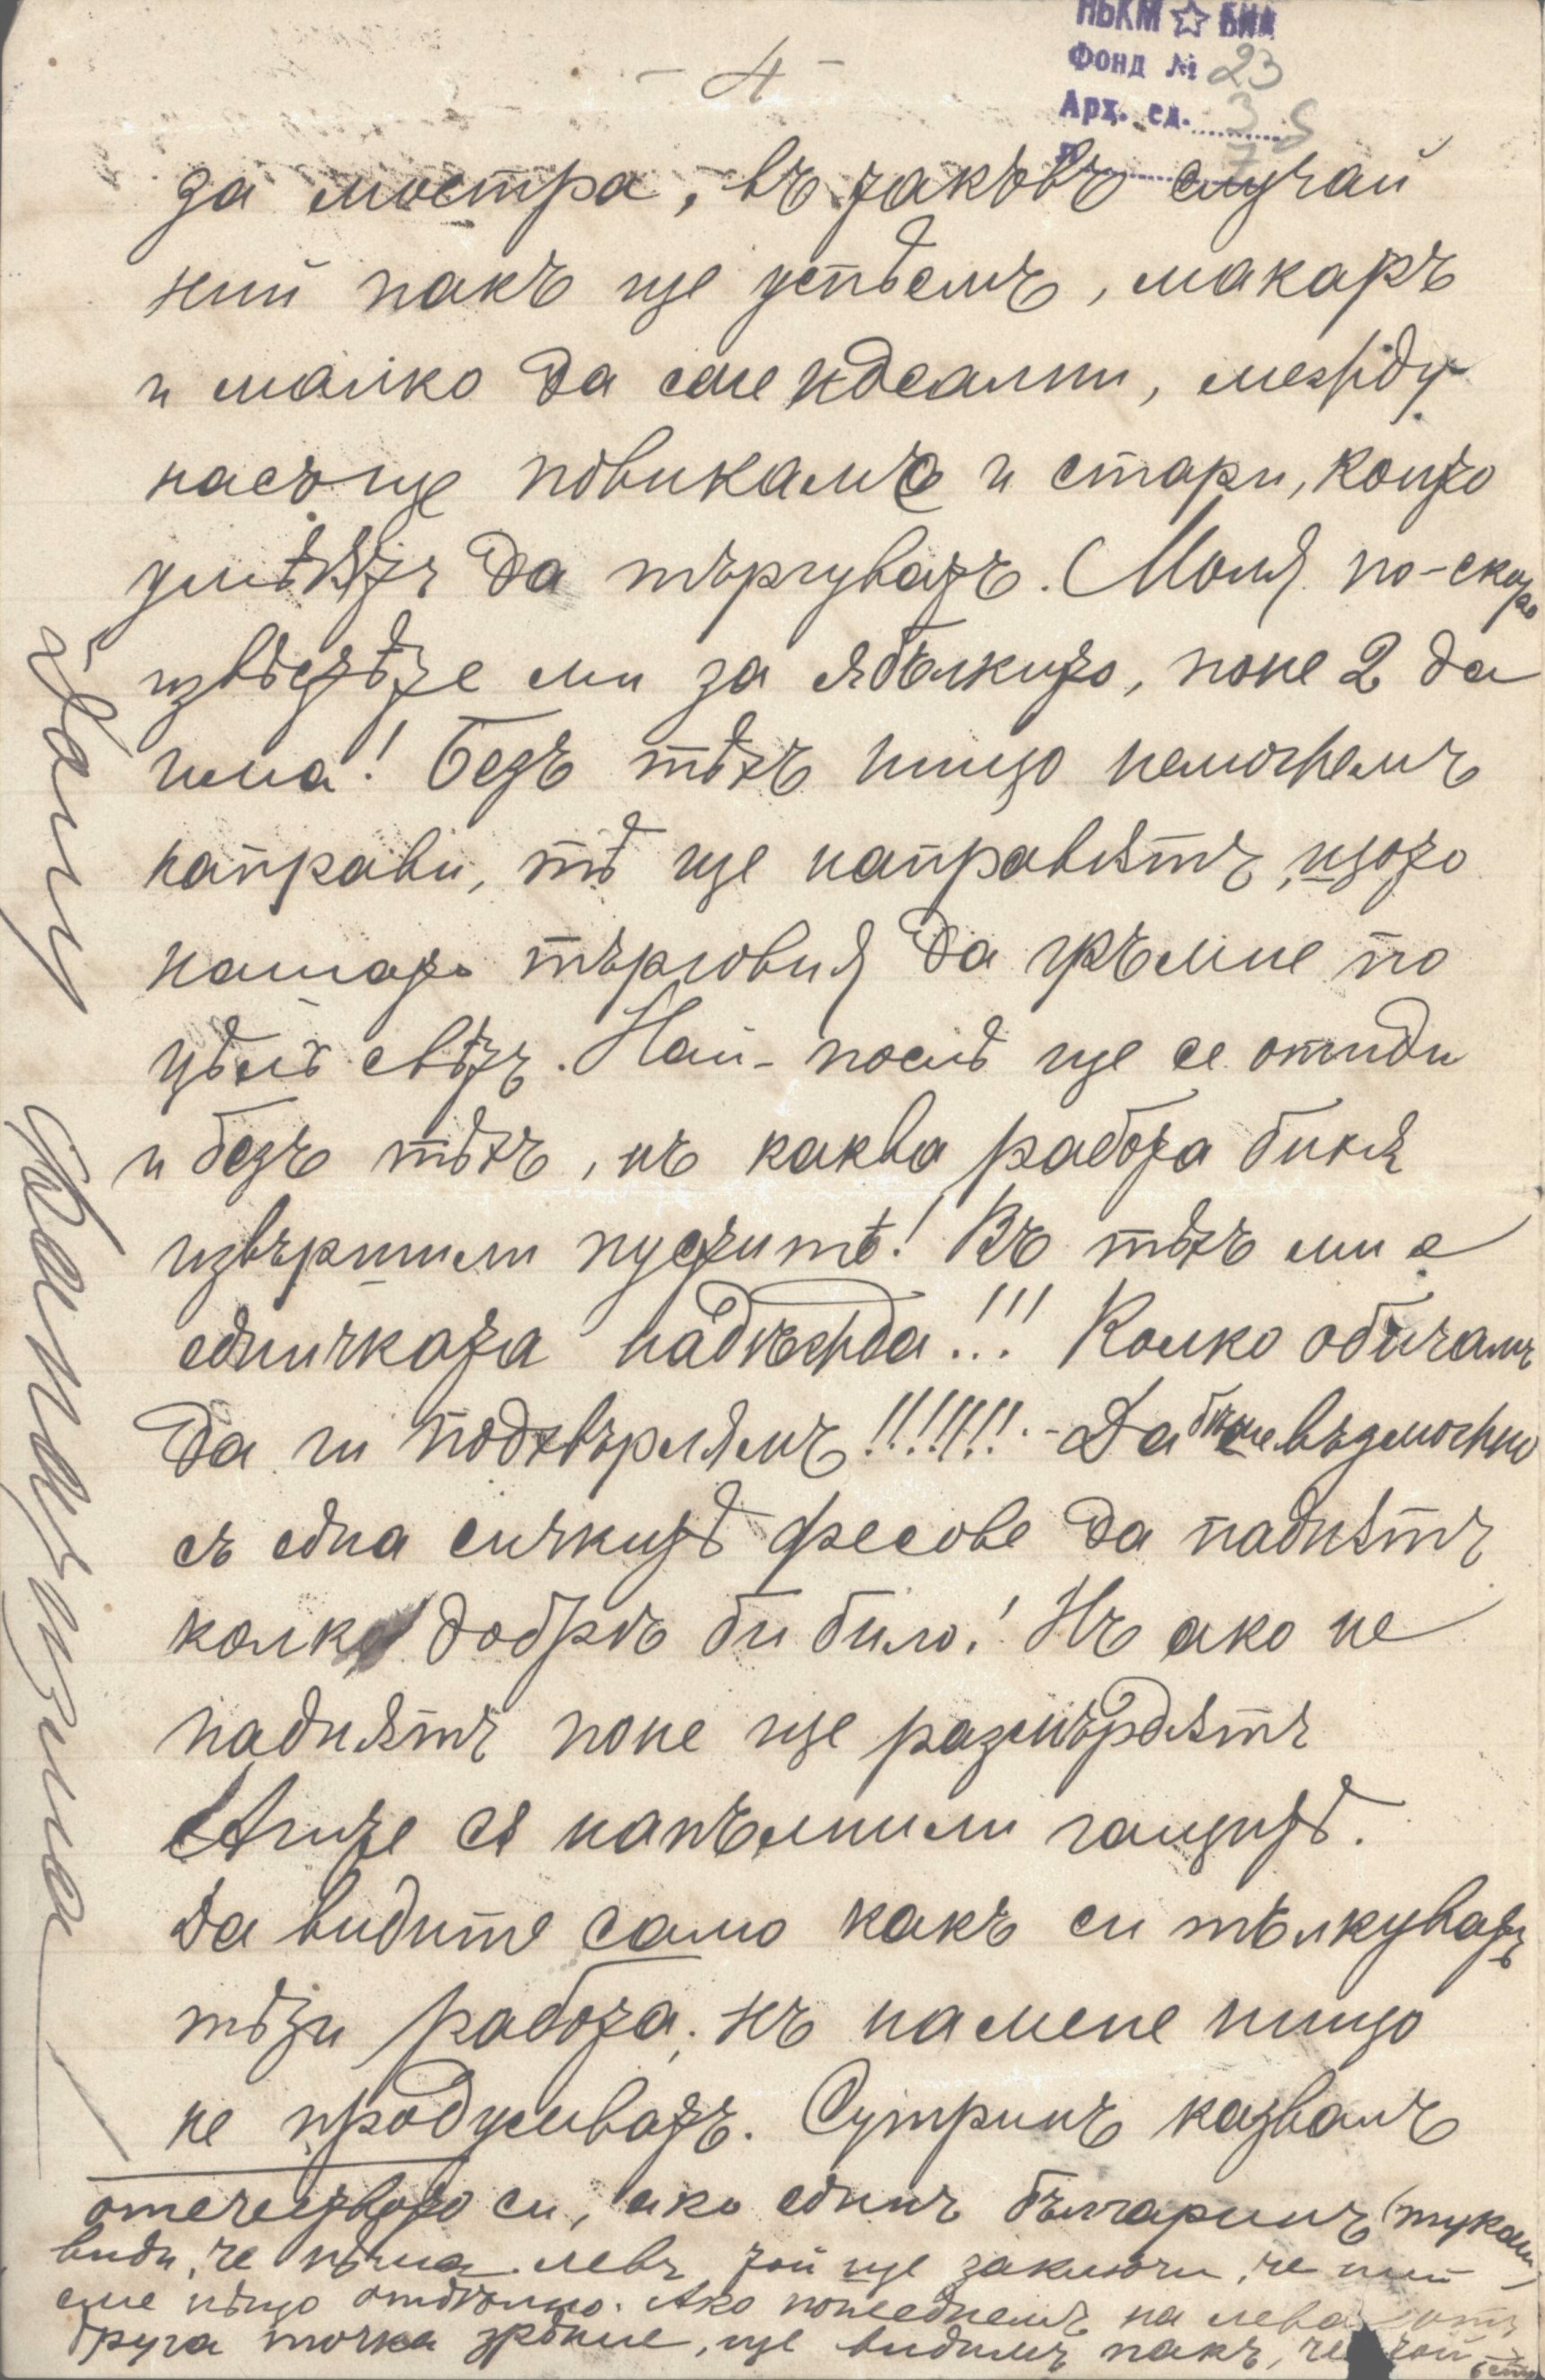 - 4 -
НБКМ ☆ БИА
Фонд № 23
Арх. ед. 3
за мостра, въ такъвъ случай
ний пакъ ще успѣемъ, макаръ
и малко да сме идеални, между
насъ ще повикамъ и стари, които
умѣѫтъ да търгуватъ. Моля по-скоро
извѣстѣте ми за ябълкито, поне 2 да
има! Безъ тѣхъ нищо неможемъ
направи, тѣ ще направѭтъ, щото
нашата търговия да гръмне по
цѣлъ свѣтъ. Най-послѣ ще се отиди
и безъ тѣхъ, нъ каква работа бихѫ
извършили пуститѣ! Въ тѣхъ ми е
едничката надѣжда!!! Колко обичамъ
да ги подхвърлямъ!!!!!!! - Да бѣше възможно
съ една сичкитѣ фесове да паднѫтъ
колко добрѣ би било! Нъ ако не
паднѫтъ поне ще размърдѫтъ
Агите сѫ напълнили гащитѣ.
Да видите само какъ си тълкуватъ
тѣзи работа, нъ на мене нищо
не продумватъ. Сутринь казвамъ
отечеството си, ако единъ българинъ тукаш
види, че нѣма левъ той ще заключи, че ний
сме нѣщо отдѣлно. Ако погледнемъ на лева отъ
друга точка зрѣние, ще видимъ пакъ, че той